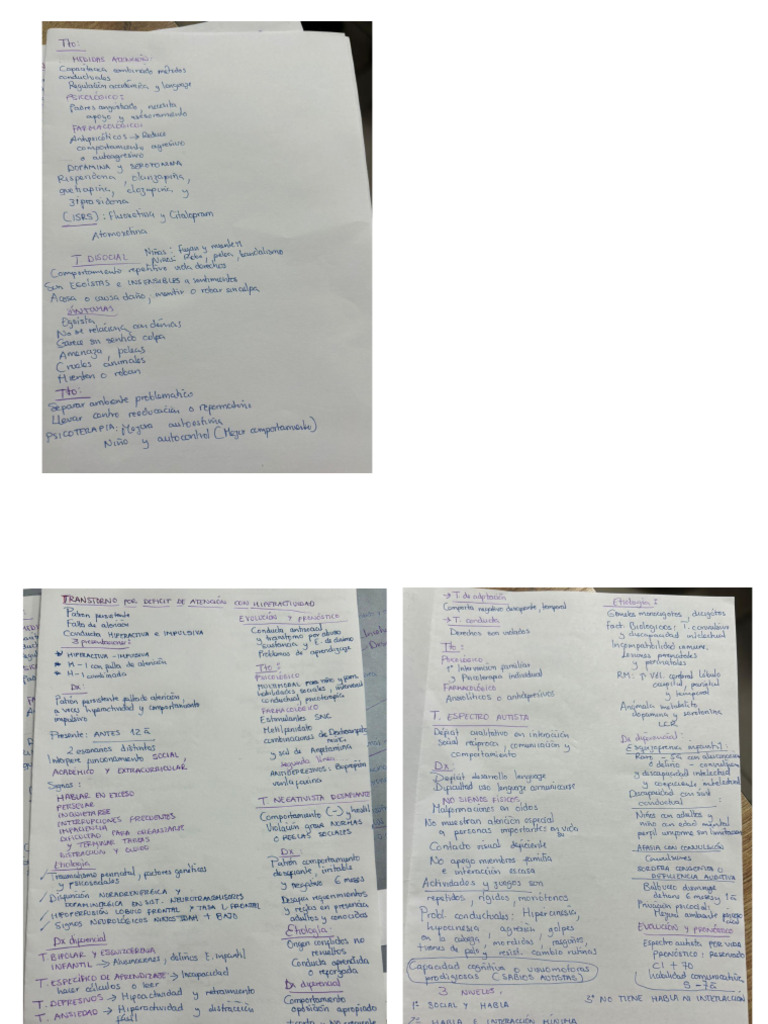 Tto:
MEDIDAS ATENCIÓN:
Capacitación combinando métodos
conductuales
Regulación académica y lenguaje
PSICOLÓGICO:
Padres angustiados, necesita
apoyo y asesoramiento
FARMACOLÓGICO:
Antipsicóticos → Reduce
comportamiento agresivo
o autoagresivo
DOPAMINA y SEROTONINA
Risperidona, olanzapina,
quetiapina, clozapina y
ziprasidona
(ISRS): Fluoxetina y Citalopram
Atomoxetina
T DISOCIAL
Niñas: Fugan y mienten
Niños: Roba, pelea, vandalismo
Comportamiento repetitivo viola derechos
Son EGOISTAS e INSENSIBLES a sentimientos
Acosa o causa daño, mentir o robar sin culpa
SÍNTOMAS
Egoísta
No se relaciona con demás
Carece sin sentido culpa
Amenaza, peleas
Crueles animales
Mienten o roban
Tto:
Separar ambiente problematico
Llevar centro reeducación o reformatorio
PSICOTERAPIA: Mejora autoestima
Niño y autocontrol (Mejor comportamiento)
TRANSTORNO POR DEFICIT DE ATENCIÓN CON HIPERACTIVIDAD
Patrón persistente
Falta de atención
Conducta HIPERACTIVA e IMPULSIVA
3 presentaciones:
HIPERACTIVA - IMPULSIVA
H-I con falta de atención
H-I combinada
Dx:
Patrón persistente falta de atención
a veces hiperactividad y comportamiento
impulsivo
Presente: ANTES 12 a
2 escenarios distintos
Interfiere funcionamiento SOCIAL,
ACADÉMICO y EXTRACURRICULAR
Signos:
HABLAR EN EXCESO
PERSEVERAR
INQUIETARSE
INTERRUPCIONES FRECUENTES
IMPACIENCIA
DIFICULTAD PARA ORGANIZARSE
y TERMINAR TAREAS
DISTRACCIÓN y OLVIDO
Etiología
Traumatismo perinatal, factores genéticos
y psicosociales
Disfunción NORADRENÉRGICA y
DOPAMINÉRGICA EN SIST. NEUROTRANSMISORES
HIPOPERFUSIÓN LÓBULO FRONTAL Y TASA L FRONTAL
Signos NEUROLÓGICOS NIÑOS TDAH + BAJO
Dx diferencial
T. BIPOLAR Y ESQUIZOFRENIA
INFANTIL → Alucinaciones, delirios E. Infantil
T. ESPECÍFICO DE APRENDIZAJE → Incapacidad
hacer cálculos o leer
T. DEPRESIVOS → Hipoactividad y retraimiento
T. ANSIEDAD → Hiperactividad y distracción
fácil
EVOLUCIÓN Y PRONÓSTICO
Conducta antisocial
y transtorno por abuso
sustancia y E. de ánimo
Problemas de aprendizaje
Tto:
PSICOLÓGICO
MULTIMODAL para niño y fam.
habilidades sociales, intervención
conductual, psicoterapia
FARMACOLÓGICO
Estimulantes SNC
Metilfenidato
combinaciones de Dextroanfetamina
y sal de Anfetamina
segunda línea
ANTIDEPRESIVOS: Bupropión
venlafaxina
T. NEGATIVISTA DESAFIANTE
Comportamiento (-) y hostil
Violación grave NORMAS
o REGLAS SOCIALES
Dx:
Patrón comportamiento
desafiante, irritable
y negativo 6 meses
Desafía requerimientos
y reglas en presencia
adultos y conocidos
Etiología:
Origen conflictos no
resueltos
Conducta aprendida
o reforzada
Dx diferencial
Comportamiento
oposición apropiado
→ T. de adaptación
Comporta negativo desafiante, temporal
→ T. conducta
Derechos son violados
Tto:
PSICOLÓGICO
1° Intervención familiar
y Psicoterapia individual
FARMACOLÓGICO
Ansiolíticos o antidepresivos
T. ESPECTRO AUTISTA
Déficit cualitativo en interacción
social recíproca, comunicación y
comportamiento
Dx:
Déficit desarrollo lenguaje
Dificultad uso lenguaje comunicarse
NO SIGNOS FÍSICOS
Malformaciones en oídos
No muestran atención especial
a personas importantes en vida
Contacto visual deficiente
No apego miembros familia
e interacción escasa
Actividades y juegos son
repetidos, rígidos, monótonos
Probl conductuales: Hipercinesia,
hipocinesia, agresión, golpes
en la cabeza, mordidas, rasguños,
tirones de pelo y resist. cambio rutinas
Capacidad cognitiva o visuomotoras
prodigiosas (SABIOS AUTISTAS)
3 NIVELES
1° SOCIAL Y HABLA
2° HABLA E INTERACCIÓN MÍNIMA
3° NO TIENE HABLA NI INTERACCIÓN
Etiología:
Gemelos monocigotos, dicigotos
Fact. Biológicos: T. convulsivo
y discapacidad intelectual
Incompatibilidad inmune,
Lesiones prenatales
y perinatales
RM: ↑ Vol. cerebral lóbulo
occipital, parietal
y temporal
Anomalía metabolito
dopamina y serotonina
LCR
Dx diferencial:
Esquizofrenia infantil:
Raro - 5a con alucinaciones
o delirio - convulsiones
y discapacidad intelectual
y coeficiente intelectual
Discapacidad con sist
conductual
Niños con adultos y
niño con edad mental
perfil uniforme sin limitaciones
AFASIA CON CONVULSIÓN
Convulsiones
SORDERA CONGÉNITA O
DEFICIENCIA AUDITIVA
Balbuceo disminuye
detiene 6 meses y 1a
Privación psicosocial:
Mejora ambiente psicosocial
EVOLUCIÓN Y PRONÓSTICO
Espectro autista POR VIDA
PRONÓSTICO: reservado
CI + 70
habilidad comunicativa
5-7a